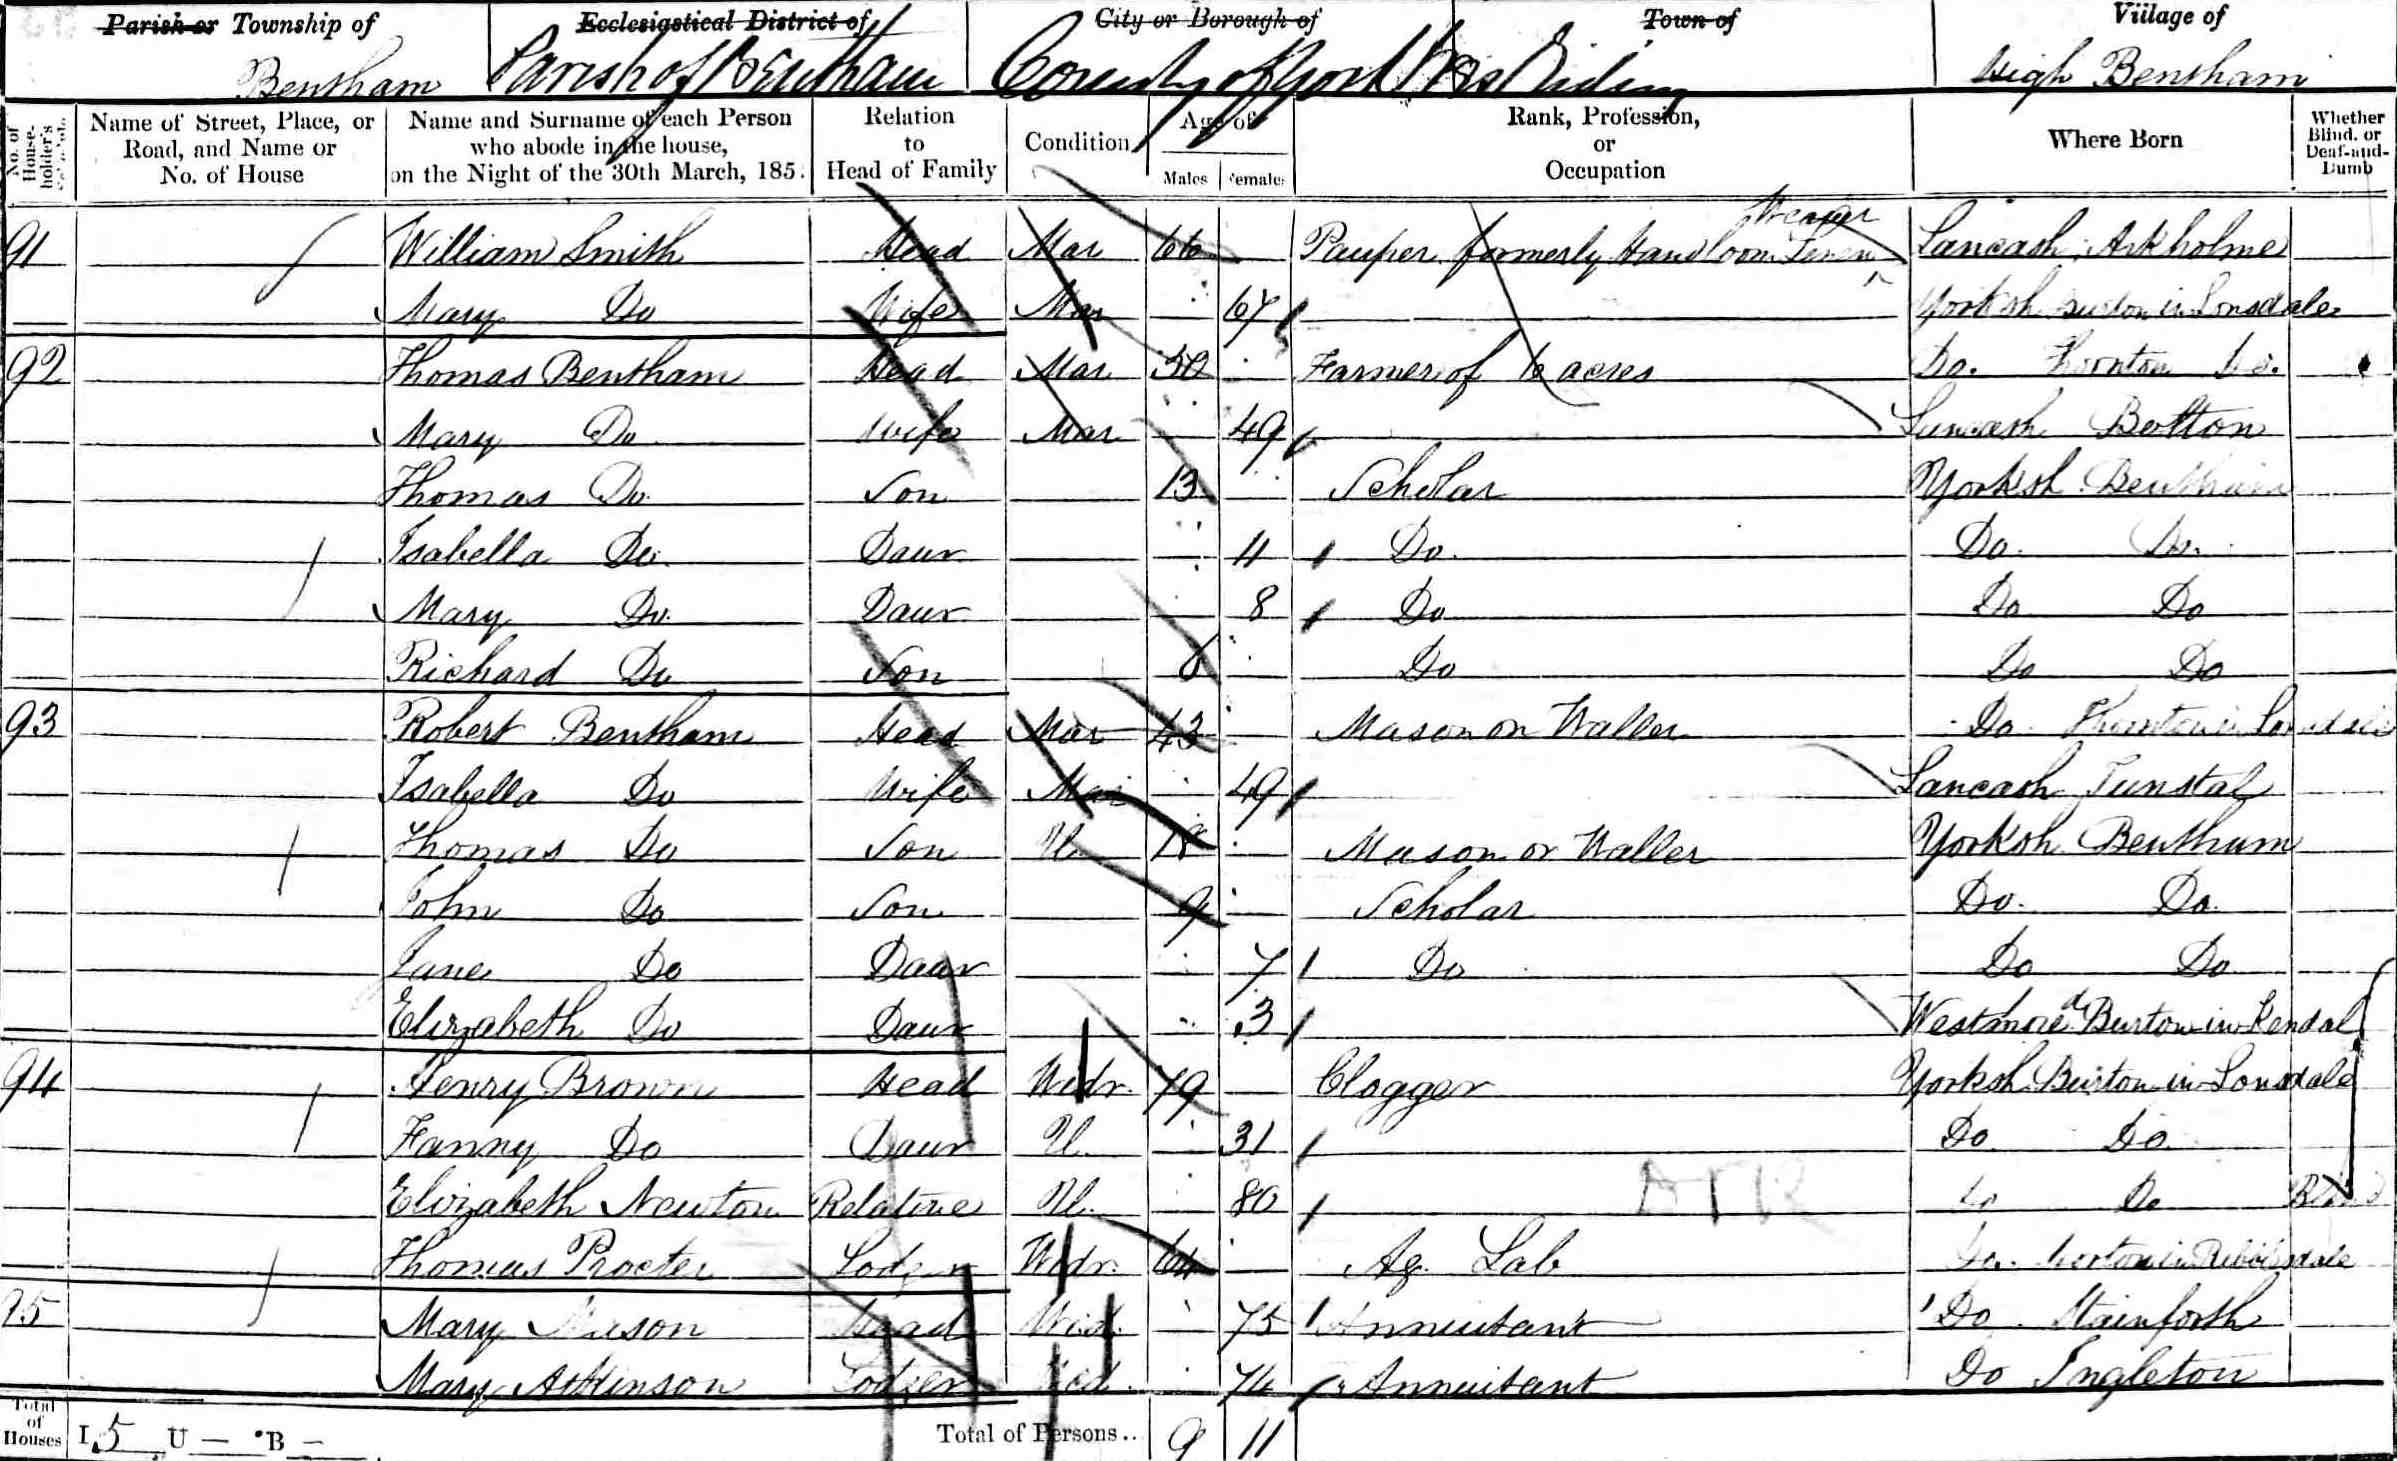 Parish or Township of Ecclesiastical District of City or Borough of Town of Village of
Bentham Parish of Bentham County of York West Riding High Bentham
No. of House-holder's Name of Street, Place, or Road, and Name or No. of House Name and Surname of each Person who abode in the house, on the Night of the 30th March, 185 Relation to Head of Family Condition Age of Males Females Rank, Profession, or Occupation Where Born Whether Blind, or Deaf-and-Dumb
91 William Smith Head Mar 66 Pauper formerly Handloom Linen Weaver Lancash Arkholme
Mary Do Wife Mar 67 Yorksh Burton in Lonsdale
92 Thomas Bentham Head Mar 50 Farmer of 6 acres Do. Thornton Do.
Mary Do Wife Mar 49 Lancash Bolton
Thomas Do Son 13 Scholar Yorksh Bentham
Isabella Do Daur 11 Do. Do. Do.
Mary Do. Daur 8 Do Do Do
Richard Do Son 6 Do Do Do
93 Robert Bentham Head Mar 43 Mason or Waller Do Thornton in Lonsdale
Isabella Do Wife Mar 49 Lancash Tunstal
Thomas Do Son U 18 Mason or Waller Yorksh Bentham
John Do Son 9 Scholar Do. Do.
Jane Do Daur 7 Do Do Do
Elizabeth Do Daur 3 Westmored Burton in Kendal
94 Henry Brown Head Widr. 79 Clogger Yorksh Burton in Lonsdale
Fanny Do Daur U 31 Do Do
Elizabeth Newton Relative U. 80 Do Do Blind
Thomas Procter Lodger Widr. 64 Ag. Lab Do. Horton in Ribblesdale
95 Mary Mason Head Wid. 75 Annuitant Do Stainforth
Mary Atkinson Lodger Wid. 74 Annuitant Do Ingleton
Total of Houses I 5 U — B — Total of Persons.. 9 11